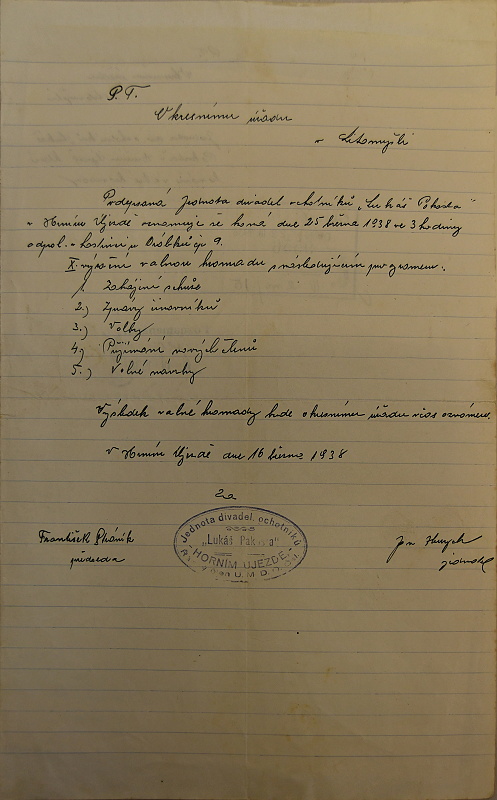 P. T.
Okresnímu úřadu
v Litomyšli
Podepsaná Jednota divadel. ochotníků „Lukáš Pakosta"
v Horním Újezdě oznamuje že koná dne 25 března 1938 ve 3 hodiny
odpol. v hostinci u čp 9.
X. výroční valnou hromadu s následujícím programem.
1.) Zahájení schůze
2.) Zprávy činovníků
3.) Volby
4.) Přijímání nových členů
5.) Volné návrhy
Výsledek valné hromady bude okresnímu úřadu včas oznámen.
V Horním Újezdě dne 16 března 1938
Za
Jednota divadel. ochotníků
„Lukáš Pakosta"
HORNÍM ÚJEZDĚ.
František
předseda
Jan
jednatel